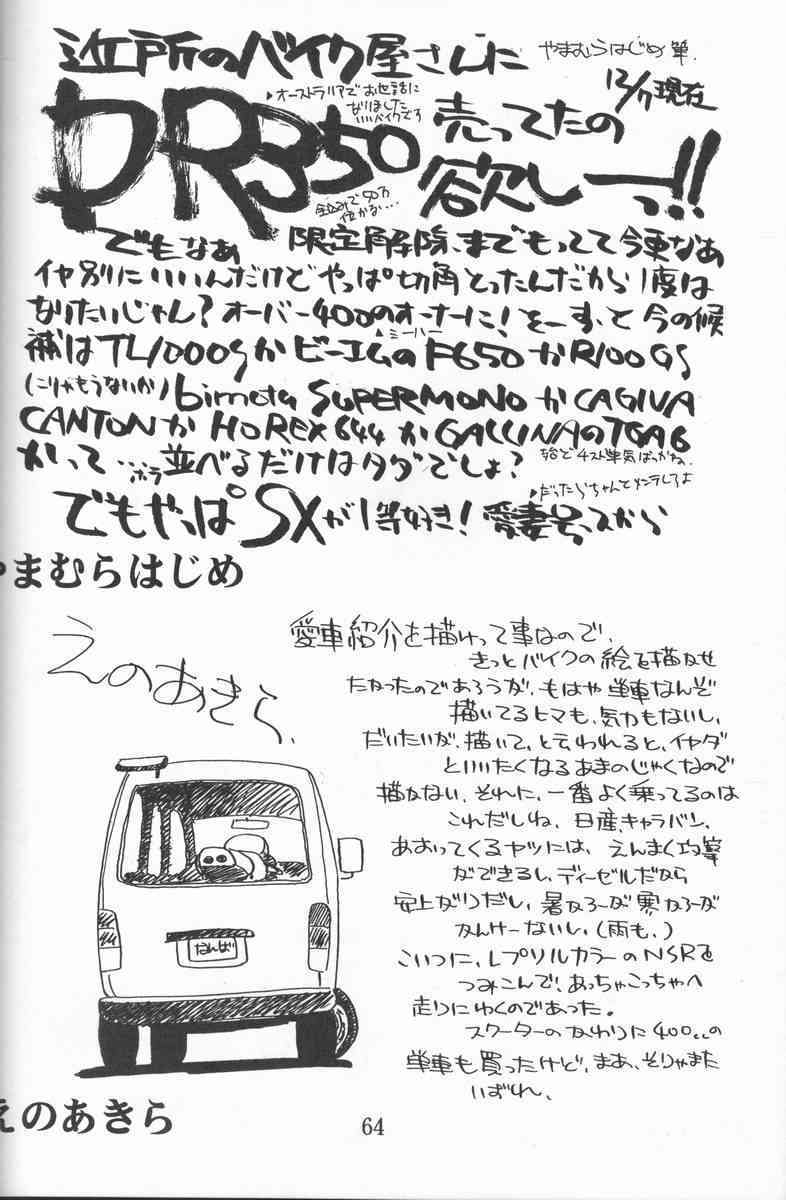 近所のバイク屋さんに
やまむらはじめ 筆.
12/17現在
▶オーストラリアでお世話に
なりました
いいバイクです
DR350 売ってたの
欲しーっ!!
全込みで50万
位かな…
でもなぁ 限定解除、までもってて今更なぁ
イヤ別にいいんだけどやっぱ切角とったんだから1度は
なりたいじゃん?オーバー400のオーナーに!をーすっと今の候
▲ミーハー
補はTL1000SかビーエムのF650かR100GS
(こりゃもうないか)bimota SUPERMONOかCAGIVA
CANYONかHOREX644かGALLINAのTGA6
かって…ホラ並べるだけはタダでしょ?
▶だったらちゃんとメンテしろよ
でもやっぱSXが1等好き!愛妻号っスから
やまむらはじめ
えのあきら、
愛車紹介を描けって事なので、
きっとバイクの絵を描かせ
たかったのであろうが、もはや単車なんぞ
描いてるヒマも、気力もないし、
だいたいが、描いて、と云われると、イヤダ
といいたくなるあまのじゃくなので
描かない、それに、一番よく乗ってるのは
これだしね、日産、キャラバン、
あおってくるヤツには、えんまく攻撃
ができるし、ディーゼルだから
安上がりだし、暑かろーが寒かろーが
かんけーないし、(雨も、)
こいつに、レプソルカラーのNSRを
つみこんで、あっちゃこっちゃへ
走りにゆくのであった。
スクーターのかわりに400ccの
単車も買ったけど、まあ、そりゃまた
いずれ、
なんば
えのあきら
64